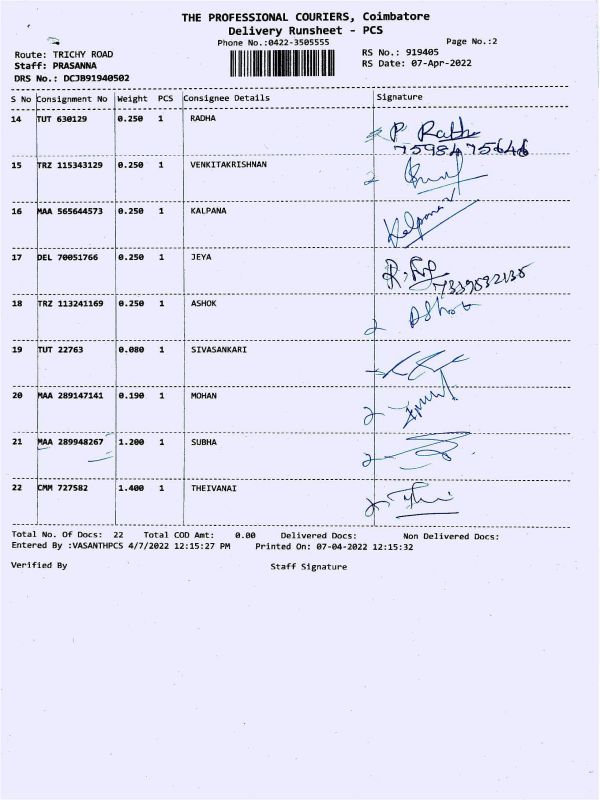 THE PROFESSIONAL COURIERS, Coimbatore
Delivery Runsheet - PCS
Phone No.:0422-3505555 Page No.:2
Route: TRICHY ROAD RS No.: 919405
Staff: PRASANNA RS Date: 07-Apr-2022
DRS No.: DCJB91940502
S No Consignment No Weight PCS Consignee Details Signature
14 TUT 630129 0.250 1 RADHA P. Radha
7598475646
15 TRZ 115343129 0.250 1 VENKITAKRISHNAN
16 MAA 565644573 0.250 1 KALPANA Kalpana
17 DEL 70051766 0.250 1 JEYA
18 TRZ 113241169 0.250 1 ASHOK Ashok
19 TUT 22763 0.080 1 SIVASANKARI
20 MAA 289147141 0.190 1 MOHAN
21 MAA 289948267 1.200 1 SUBHA
22 CMM 727582 1.400 1 THEIVANAI
Total No. Of Docs: 22 Total COD Amt: 0.00 Delivered Docs: Non Delivered Docs:
Entered By :VASANTHPCS 4/7/2022 12:15:27 PM Printed On: 07-04-2022 12:15:32
Verified By Staff Signature